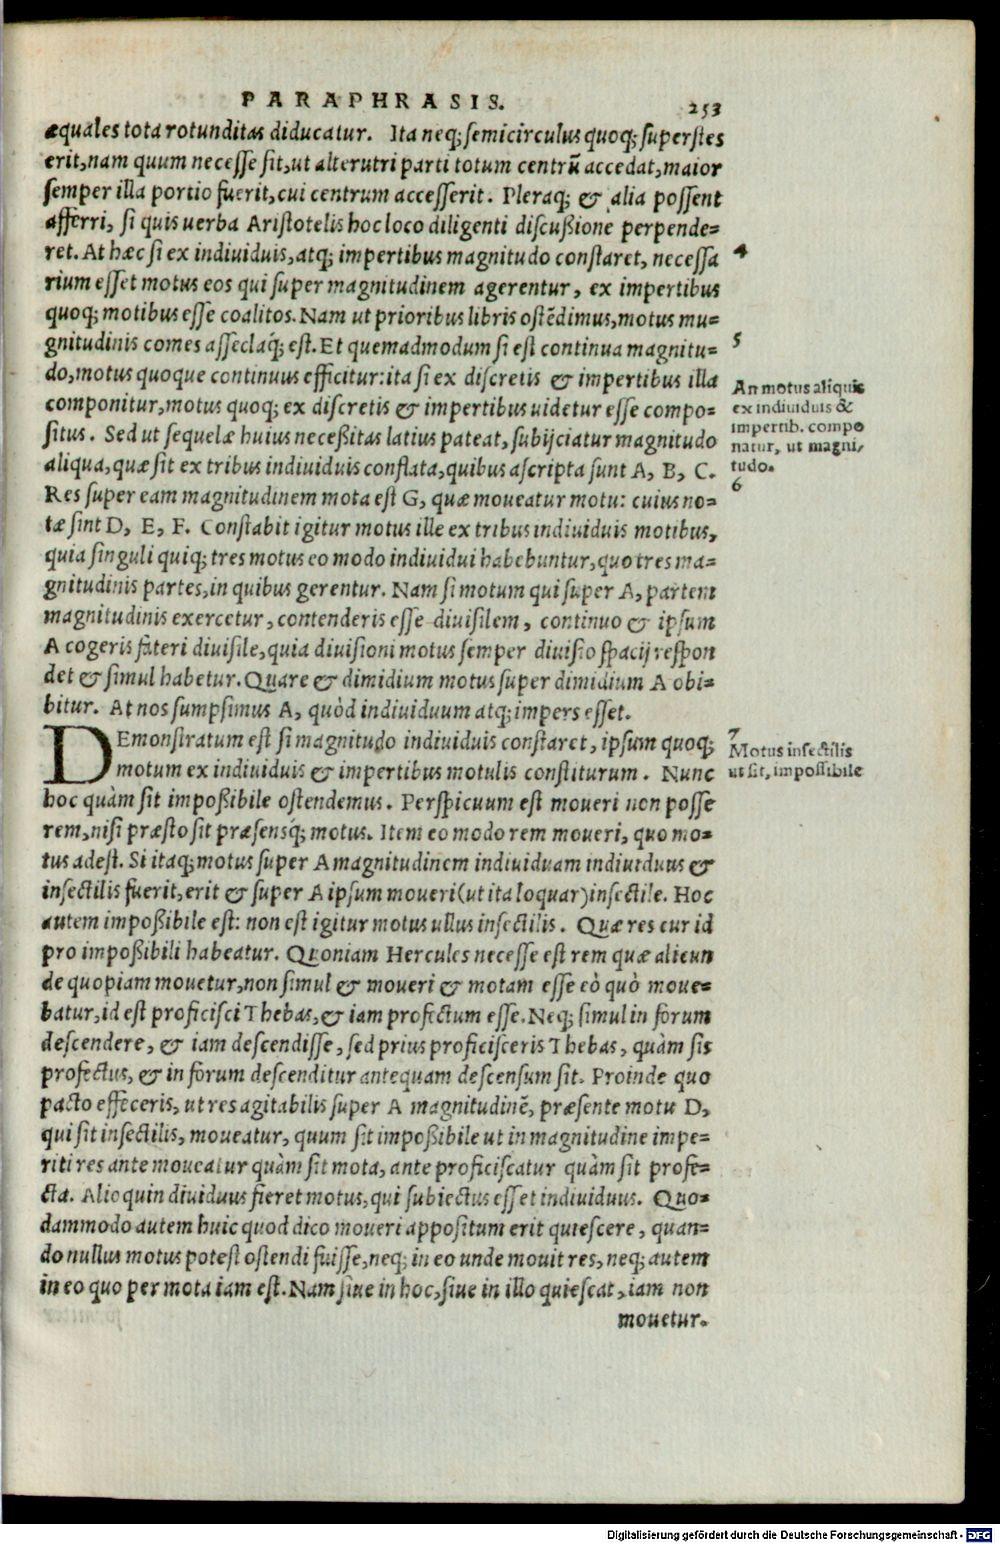 PARAPHRASIS. 253
æquales tota rotunditas diducatur. Ita neq; semicirculus quoq; superstes
erit, nam quum necesse sit, ut alterutri parti totum centrū accedat, maior
semper illa portio fuerit, cui centrum accesserit. Pleraq; & alia possent
afferri, si quis uerba Aristotelis hoc loco diligenti discußione perpende=
ret. At hæc si ex indiuiduis, atq; impertibus magnitudo constaret, necessa
4
rium esset motus eos qui super magnitudinem agerentur, ex impertibus
quoq; motibus esse coalitos. Nam ut prioribus libris ostēdimus, motus ma=
gnitudinis comes asseclaq́; est. Et quemadmodum si est continua magnitu=
5
do, motus quoque continuus efficitur: ita si ex discretis & impertibus illa
componitur, motus quoq; ex discretis & impertibus uidetur esse compo=
situs. Sed ut sequelæ huius neceßitas latius pateat, subijciatur magnitudo
aliqua, quæ sit ex tribus indiuiduis conflata, quibus ascripta sunt A, B, C.
An motus aliquis
ex indiuiduis &
impertib. compo
natur, ut magni/
tudo.
6
Res super eam magnitudinem mota est G, quæ moueatur motu: cuius no=
tæ sint D, E, F. Constabit igitur motus ille ex tribus indiuiduis motibus,
quia singuli quiq; tres motus eo modo indiuidui habebuntur, quo tres ma=
gnitudinis partes, in quibus gerentur. Nam si motum qui super A, partem
magnitudinis exercetur, contenderis esse diuisilem, continuo & ipsum
A cogeris fateri diuisile, quia diuisioni motus semper diuisio spacij respon
det & simul habetur. Quare & dimidium motus super dimidium A obi=
bitur. At nos sumpsimus A, quòd indiuiduum atq; impers esset.
DEmonstratum est si magnitudo indiuiduis constaret, ipsum quoq;
7
Motus insectilis
ut sit, impossibile
motum ex indiuiduis & impertibus motulis constiturum. Nunc
hoc quàm sit impoßibile ostendemus. Perspicuum est moueri non posse
rem, nisi præsto sit præsensq́; motus. Item eo modo rem moueri, quo mo=
tus adest. Si itaq; motus super A magnitudinem indiuiduam indiuiduus &
insectilis fuerit, erit & super A ipsum moueri (ut ita loquar) insectile. Hoc
autem impoßibile est: non est igitur motus ullus insectilis. Quæ res cur id
pro impoßibili habeatur. Quoniam Hercules necesse est rem quæ alicun
de quopiam mouetur, non simul & moueri & motam esse eò quò moue=
batur, id est proficisci Thebas, & iam profectum esse. Neq; simul in forum
descendere, & iam descendisse, sed prius proficisceris Thebas, quàm sis
profectus, & in forum descenditur antequam descensum sit. Proinde quo
pacto effeceris, ut res agitabilis super A magnitudinē, præsente motu D,
qui sit insectilis, moueatur, quum sit impoßibile ut in magnitudine impe=
riti res ante moueatur quàm sit mota, ante proficiscatur quàm sit profe=
cta. Alioquin diuiduus fieret motus, qui subiectus esset indiuiduus. Quo=
dammodo autem huic quod dico moueri appositum erit quiescere, quan=
do nullus motus potest ostendi fuisse, neq; in eo unde mouit res, neq; autem
in eo quo per mota iam est. Nam siue in hoc, siue in illo quiescat, iam non
mouetur.
Digitalisierung gefördert durch die Deutsche Forschungsgemeinschaft - DFG